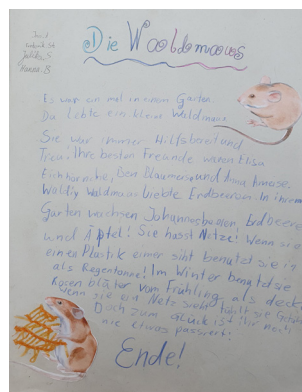 Die Waldmaus
Julika S
Hanna.B
Es war ein mal in einem Garten
Da lebte ein kleine Waldmaus
Sie war immer Hilfsbereit und
Treu. Ihre besten Freunde waren Elisa
Eichhörnchen, Ben Blaumeise und Anna Ameise.
Waldig Waldmaus liebte Erdbeeren. In ihrem
Garten wachsen Johannesbeeren, Erdbeeren
und Äpfel! Sie hasst Netze! Wenn sie
einen Plastik eimer siht benutzt sie in
als Regentonne! Im Winter benutzt sie
Rosen bläter vom Frühling, als decke
wenn sie ein Netz sieht fühlt sie Gefahr
Doch zum Glück ist ihr noch
nie etwas passiert!
Ende!